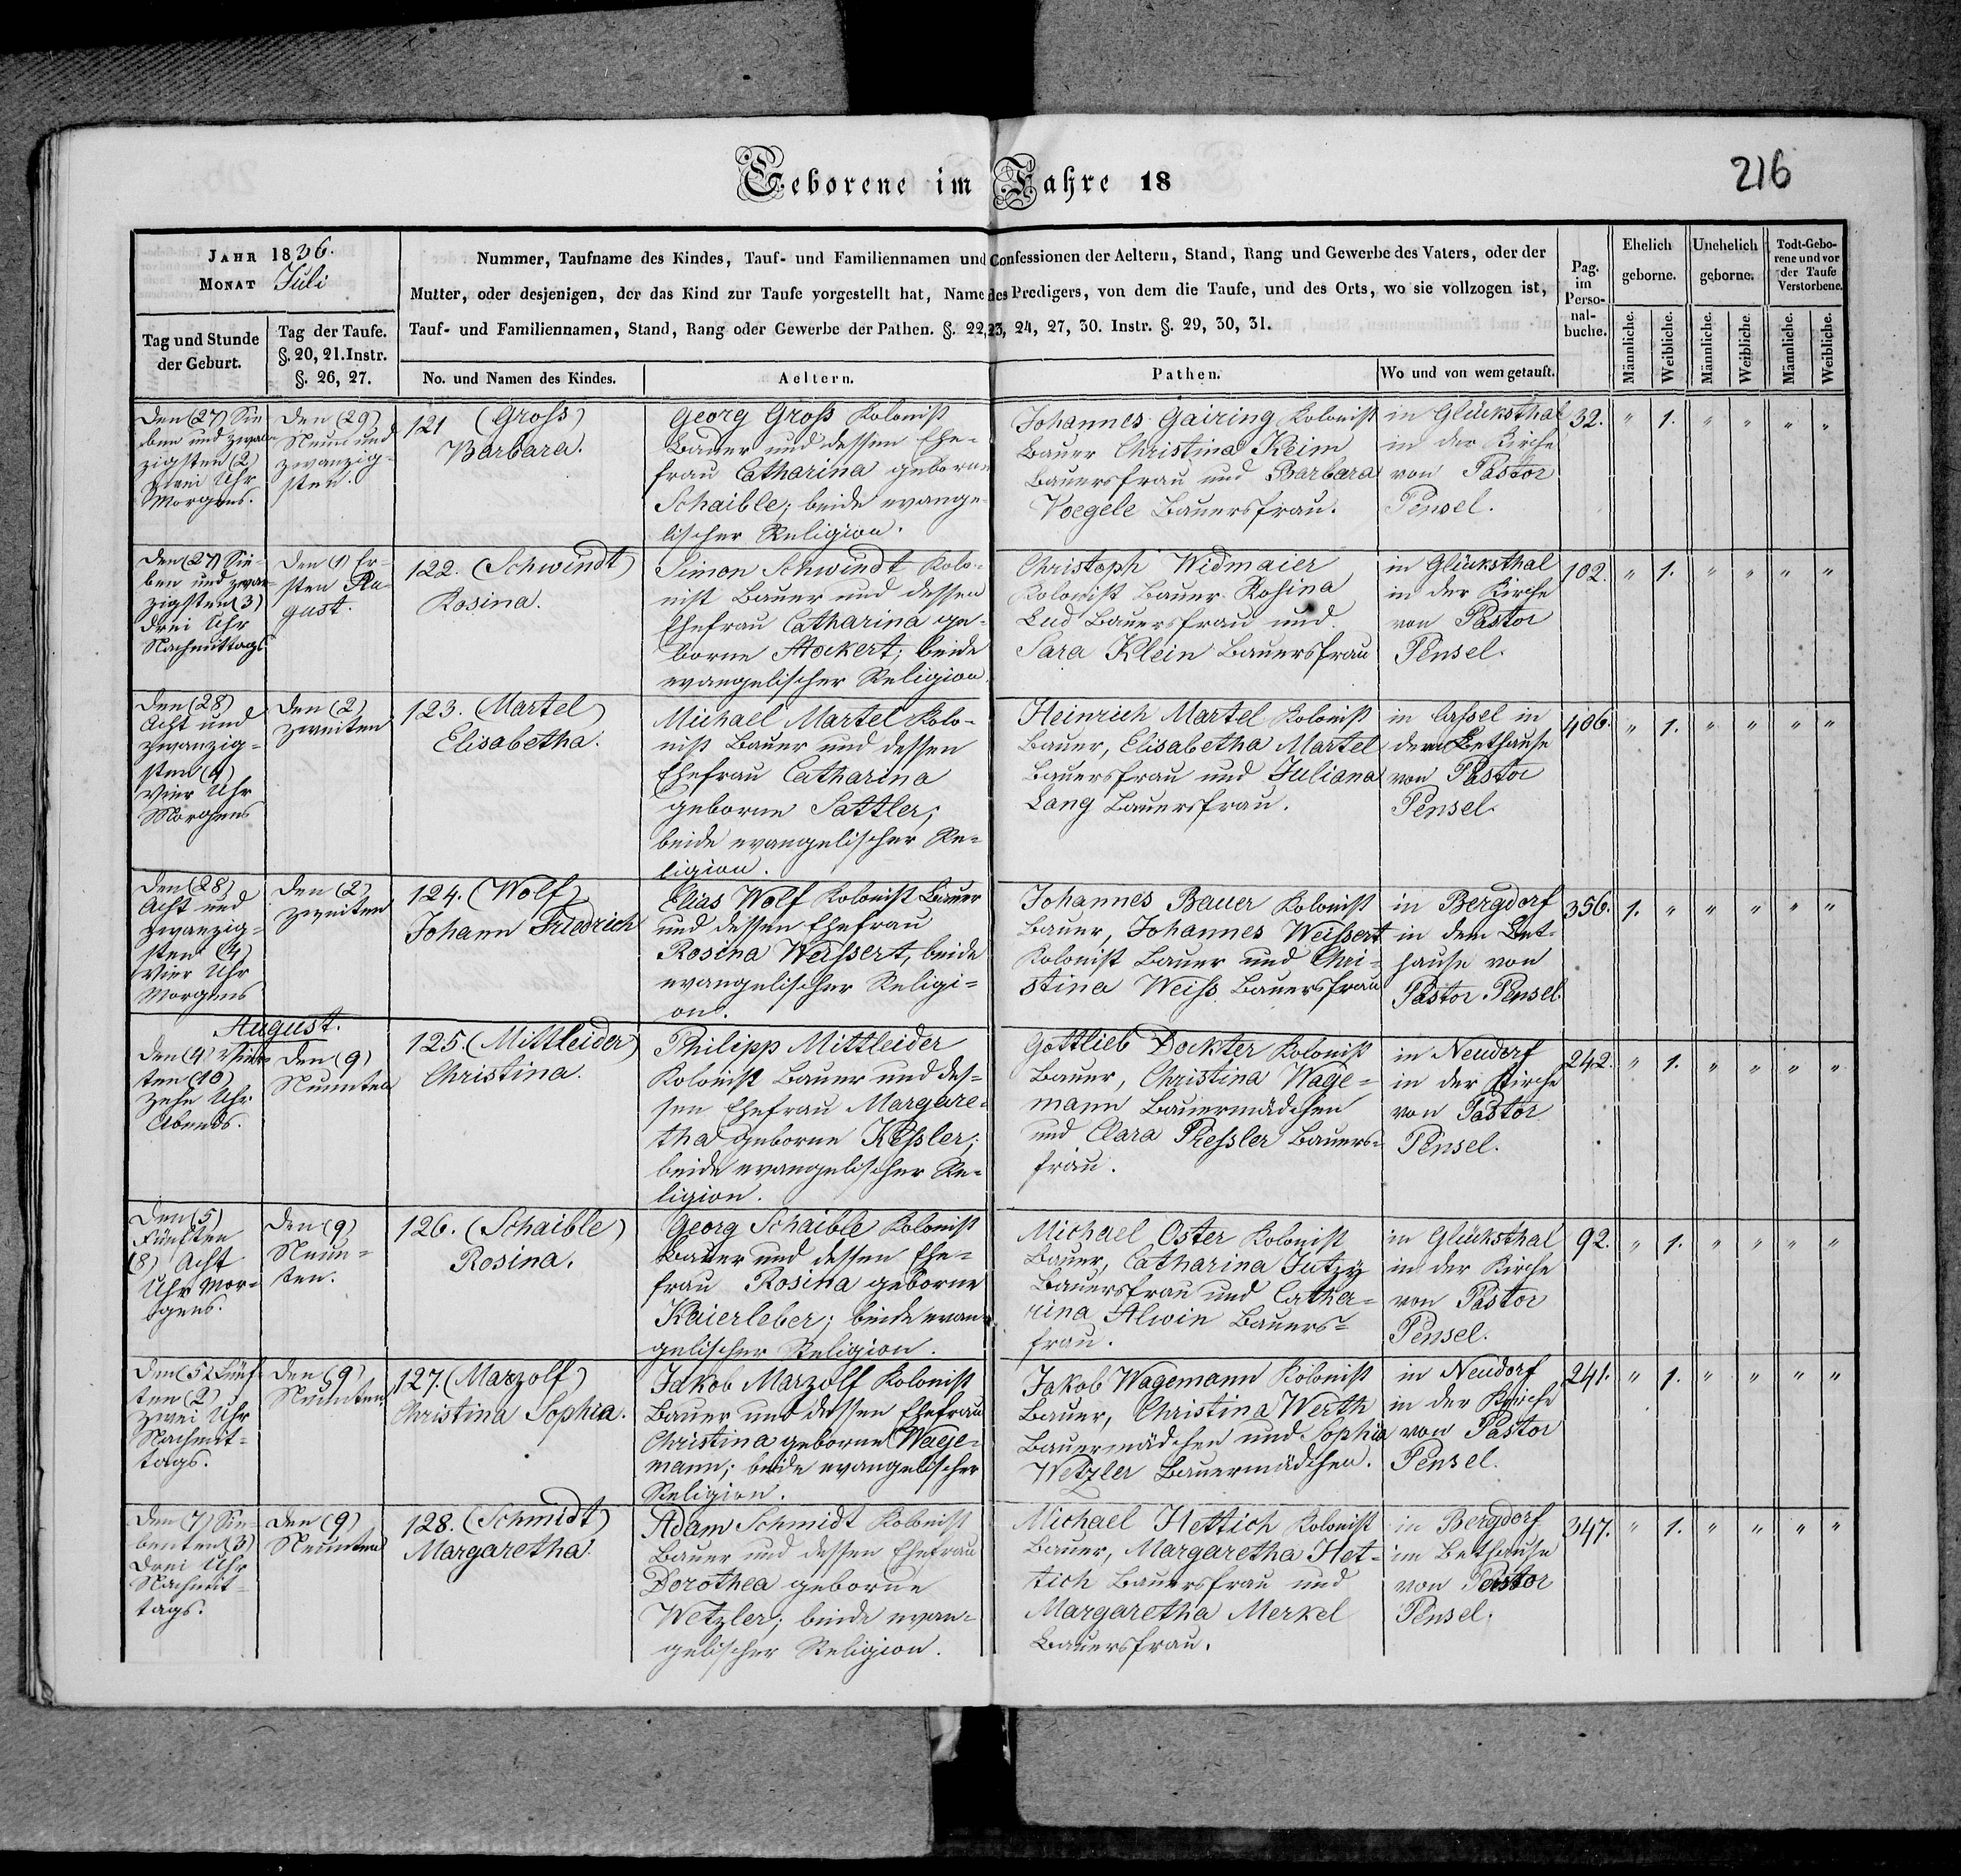 Geborene im Jahre 18
216
JAHR 1836.
MONAT Juli
Tag und Stunde
der Geburt.
Tag der Taufe.
§. 20, 21. Instr.
§. 26, 27.
Nummer, Taufname des Kindes, Tauf- und Familiennamen und Confessionen der Aeltern, Stand, Rang und Gewerbe des Vaters, oder der
Mutter, oder desjenigen, der das Kind zur Taufe vorgestellt hat, Name des Predigers, von dem die Taufe, und des Orts, wo sie vollzogen ist,
Tauf- und Familiennamen, Stand, Rang oder Gewerbe der Pathen. §. 22, 23, 24, 27, 30. Instr. §. 29, 30, 31.
No. und Namen des Kindes.
Aeltern.
Pathen.
Wo und von wem getauft.
Pag.
im
Perso-
nal-
buche.
Ehelich
geborne.
Unehelich
geborne.
Todt-Gebo-
rene und vor
der Taufe
Verstorbene.
Männliche.
Weibliche.
Männliche.
Weibliche.
Männliche.
Weibliche.
Den (27) Sie
ben und zwan
zigsten (2)
zwei Uhr
Morgens.
Den (29)
Neun und
zwanzig-
sten.
121 (Gross)
Barbara.
Georg Groß Kolonist
Bauer und dessen Ehe-
frau Catharina geborne
Schaible; beide evange-
lischer Religion.
Johannes Gairing Kolonist
Bauer Christina Keim
Bauersfrau und Barbara
Voegele Bauersfrau.
in Glücksthal
in der Kirche
von Pastor
Pensel.
32. " 1. " " " "
Den (27) Sie-
ben und zwan-
zigsten (3)
drei Uhr
Nachmittags
Den (1) Er-
sten Au-
gust.
122. (Schwindt)
Rosina.
Simon Schwindt Kolo-
nist Bauer und dessen
Ehefrau Catharina ge-
borne Stockert; beide
evangelischer Religion.
Christoph Widmaier
Kolonist Bauer Rosina
Lud Bauersfrau und
Sara Klein Bauersfrau
in Glücksthal
in der Kirche
von Pastor
Pensel.
102. " 1. " " " "
Den (28)
Acht und
zwanzig-
sten (4)
Vier Uhr
Morgens
Den (2)
Zweiten
123. (Martel)
Elisabetha.
Michael Martel Kolo-
nist Bauer und dessen
Ehefrau Catharina
geborne Sattler;
beide evangelischer Re-
ligion.
Heinrich Martel Kolonist
Bauer, Elisabetha Martel
Bauersfrau und Juliana
Lang Bauersfrau.
in Cassel in
dem Bethause
von Pastor
Pensel.
406. " 1. " " " "
Den (28)
Acht und
zwanzig-
sten (4)
Vier Uhr
Morgens
Den (2)
Zweiten
124. (Wolf)
Johann Friedrich
Elias Wolf Kolonist Bauer
und dessen Ehefrau
Rosina Weissert, beide
evangelischer Religi-
on.
Johannes Bauer Kolonist
Bauer, Johannes Weissert
Kolonist Bauer und Chri-
stina Weiss Bauersfrau
in Bergdorf
in dem Bet-
hause von
Pastor Pensel.
356. 1. " " " " "
August.
Den (4) Vier-
ten (10)
Zehn Uhr
Abends.
Den (9)
Neunten
125. (Mittleider)
Christina.
Philipp Mittleider
Kolonist Bauer und des-
sen Ehefrau Margare-
tha geborne Kessler;
beide evangelischer Re-
ligion.
Gottlieb Dockter Kolonist
Bauer, Christina Wage-
mann Bauermädchen
und Clara Pressler Bauers-
frau.
in Neudorf
in der Kirche
von Pastor
Pensel.
242. " 1. " " " "
Den (5)
Fünften
(8) Acht
Uhr Mor-
gens.
Den (9)
Neun-
ten.
126. (Schaible)
Rosina.
Georg Schaible Kolonist
Bauer und dessen Ehe-
frau Rosina geborne
Kaierleber; beide evan-
gelischer Religion.
Michael Oster Kolonist
Bauer, Catharina Jutzy
Bauersfrau und Catha-
rina Alwin Bauers-
frau.
in Glücksthal
in der Kirche
von Pastor
Pensel.
92. " 1. " " " "
Den (5) Fünf-
ten (2)
Zwei Uhr
Nachmit-
tags.
Den (9)
Neunten
127. (Marzolf)
Christina Sophia.
Jakob Marzolf Kolonist
Bauer und dessen Ehefrau
Christina geborne Wage-
mann; beide evangelischer
Religion.
Jakob Wagemann Kolonist
Bauer, Christina Werth
Bauermädchen und Sophia
Wetzler Bauermädchen.
in Neudorf
in der Kirche
von Pastor
Pensel.
241. " 1. " " " "
Den (7) Sie-
benten (3)
Drei Uhr
Nachmit-
tags.
Den (9)
Neunten
128. (Schmidt)
Margaretha.
Adam Schmidt Kolonist
Bauer und dessen Ehefrau
Dorothea geborne
Wetzler; beide evan-
gelischer Religion.
Michael Hettich Kolonist
Bauer, Margaretha Het-
tich Bauersfrau und
Margaretha Merkel
Bauersfrau.
in Bergdorf
im Bethause
von Pastor
Pensel.
347. " 1. " " " "